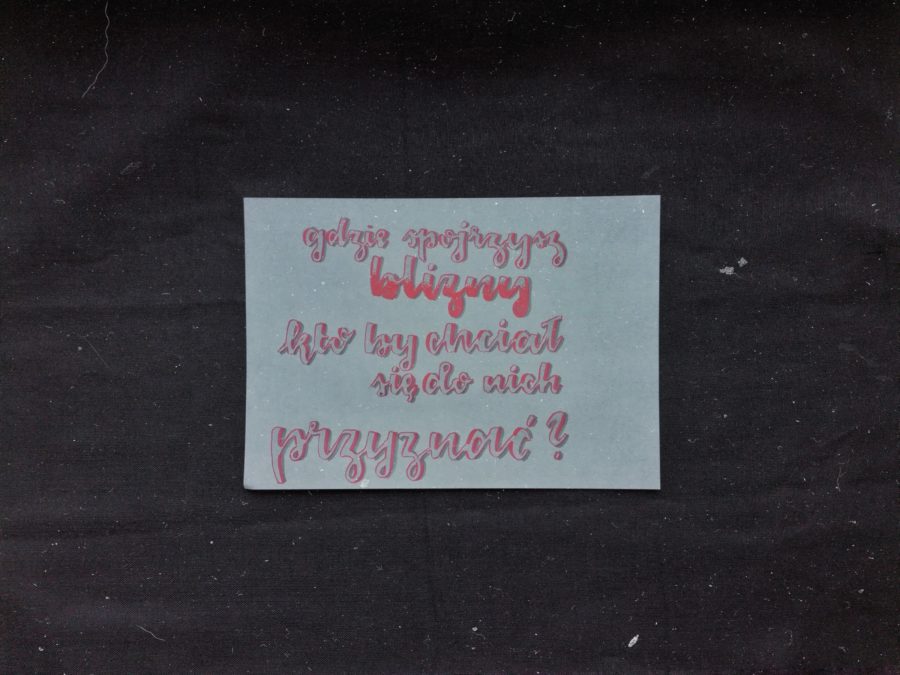 gdzie spojrzysz
blizny
kto by chciał
się do nich
przyznać?